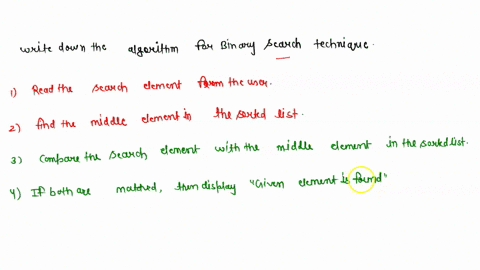 write down the algorithm for Binary search technique.
1) Read the search element from the user.
2) find the middle element in the sorted list.
3) Compare the search element with the middle element in the sorted list.
4) If both are matched, then display "Given element is found"